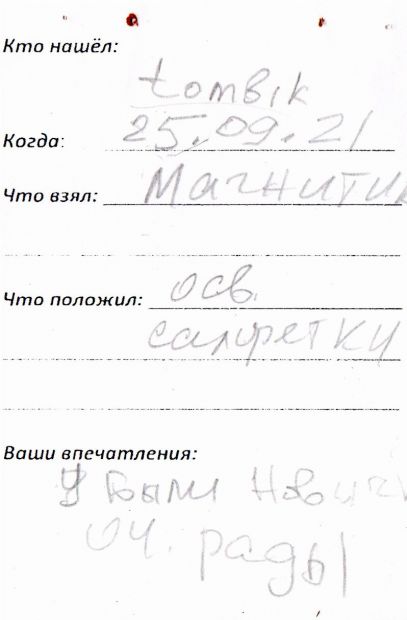 Кто нашёл:
tomвik
Когда: 25.09.21
Что взял: Магнитик
Что положил: осв.
салфетки
Ваши впечатления:
были
оч. рады